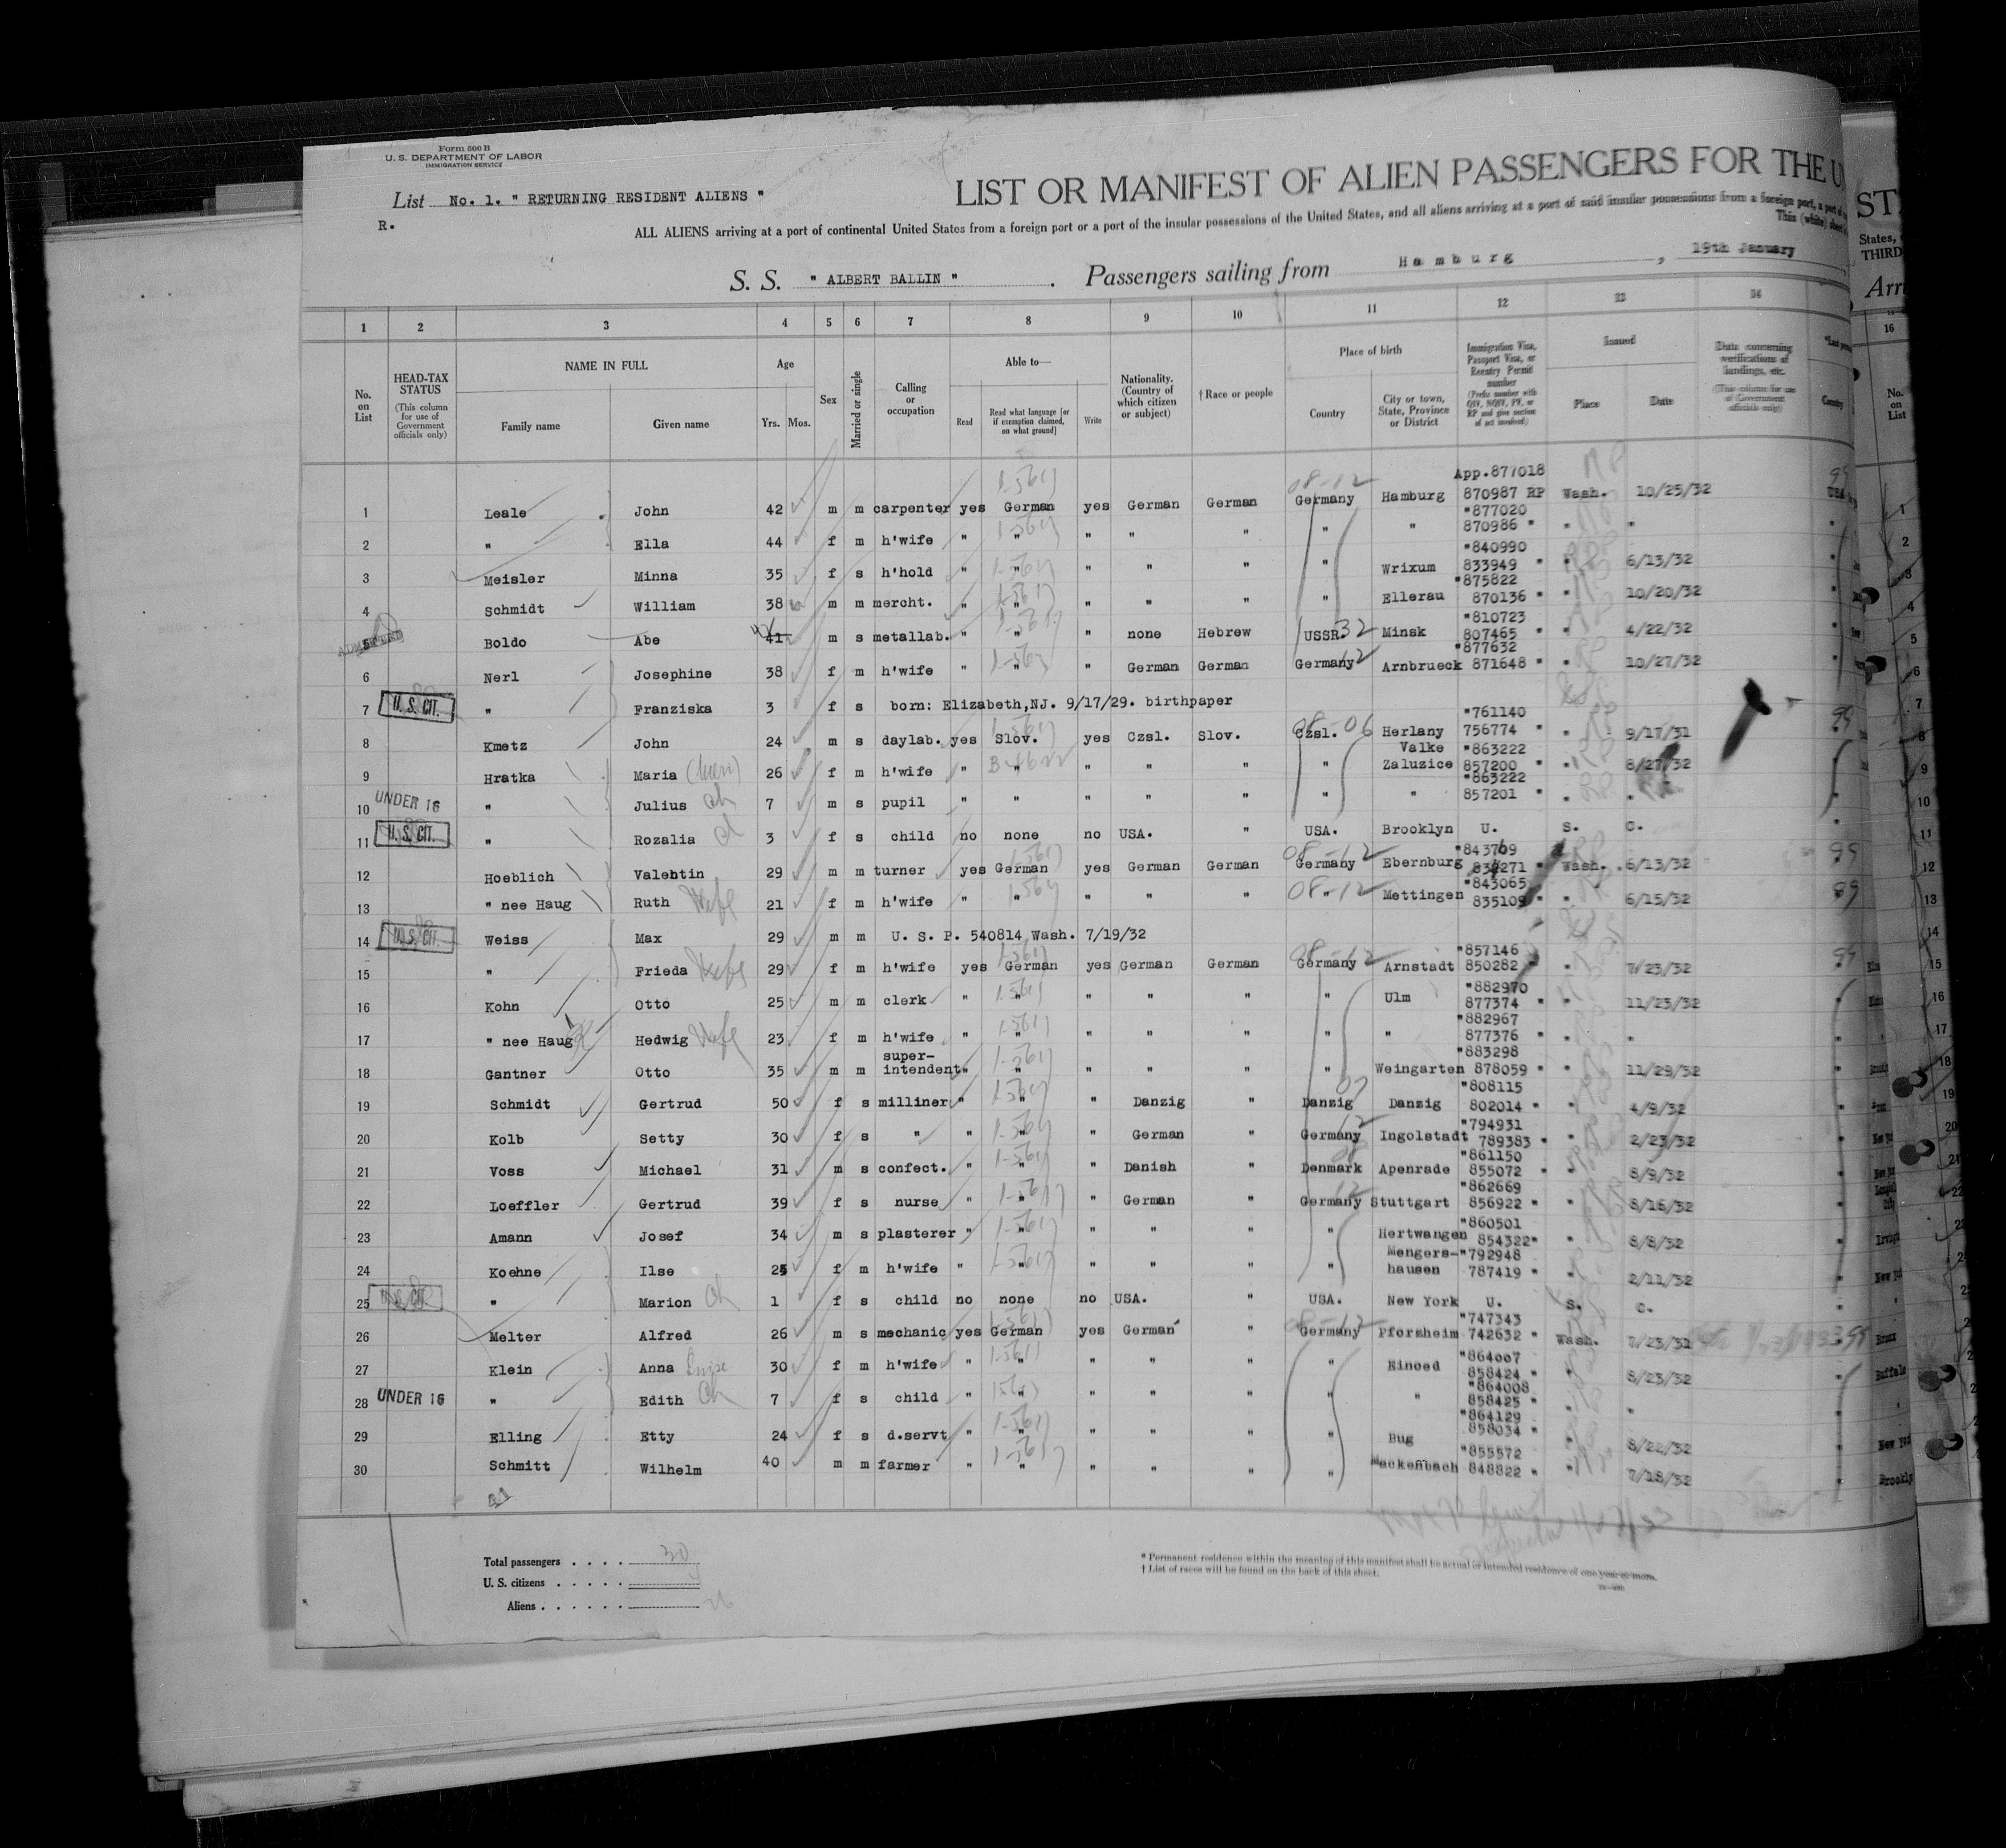 Form 500 B
U. S. DEPARTMENT OF LABOR
IMMIGRATION SERVICE
List No. 1. " RETURNING RESIDENT ALIENS "
R.
LIST OR MANIFEST OF ALIEN PASSENGERS FOR THE U
ALL ALIENS arriving at a port of continental United States from a foreign port or a port of the insular possessions of the United States, and all aliens arriving at a port of said insular possessions from a foreign port, a port of
This (white) sheet
S. S. " ALBERT BALLIN " . Passengers sailing from Hamburg , 19th January
1 2 3 4 5 6 7 8 9 10 11 12 13 14
No. on List
HEAD-TAX STATUS (This column for use of Government officials only)
NAME IN FULL Family name Given name
Age Yrs. Mos.
Sex
Married or single
Calling or occupation
Able to— Read Read what language [or if exemption claimed, on what ground] Write
Nationality. (Country of which citizen or subject)
†Race or people
Place of birth Country City or town, State, Province or District
Immigration Visa, Passport Visa, or Reentry Permit number (Prefix number with QIV, NQIV, PV, or RP and give section of act involved)
Issued Place Date
Data concerning verifications of landings, etc. (This column for use of Government officials only)
*Last perma
Country
App.877018
1 Leale John 42 m m carpenter yes German yes German German Germany Hamburg 870987 RP Wash. 10/25/32 USA
"877020
2 " Ella 44 f m h'wife " " " " " " " 870986 " " "
"840990
3 Meisler Minna 35 f s h'hold " " " " " " Wrixum 833949 " " 6/13/32
"875822
4 Schmidt William 38 m m mercht. " " " " " " Ellerau 870136 " " 10/20/32
"810723
5 Boldo Abe 41 m s metallab. " " " none Hebrew USSR. 32 Minsk 807465 " " 4/22/32
"877632
6 Nerl Josephine 38 f m h'wife " " " German German Germany 12 Arnbrueck 871648 " " 10/27/32
7 U. S. CIT. " Franziska 3 f s born: Elizabeth,NJ. 9/17/29. birthpaper
"761140
8 Kmetz John 24 m s daylab. yes Slov. yes Czsl. Slov. Czsl. 06 Herlany 756774 " " 9/17/31
Valke "863222
9 Hratka Maria 26 f m h'wife " " " " " " Zaluzice 857200 " " 8/27/32
"863222
10 UNDER 16 " Julius ch 7 m s pupil " " " " " " " 857201 " " "
11 U. S. CIT. " Rozalia ch 3 f s child no none no USA. " USA. Brooklyn U. S. C.
"843709
12 Hoeblich Valentin 29 m m turner yes German yes German German 08-12 Germany Ebernburg 834271 " Wash. 6/13/32
"843065
13 " nee Haug Ruth Wife 21 f m h'wife " " " " " 08-12 " Mettingen 835109 " " 6/15/32
14 U. S. CIT. Weiss Max 29 m m U. S. P. 540814 Wash. 7/19/32
"857146
15 " Frieda Wife 29 f m h'wife yes German yes German German Germany Arnstadt 850282 " " 7/23/32
"882970
16 Kohn Otto 25 m m clerk " " " " " " Ulm 877374 " " 11/23/32
"882967
17 " nee Haug Hedwig Wife 23 f m h'wife " " " " " " " 877376 " " "
super- "883298
18 Gantner Otto 35 m m intendent " " " " " " Weingarten 878059 " " 11/29/32
"808115
19 Schmidt Gertrud 50 f s milliner " " " Danzig " Danzig Danzig 802014 " " 4/9/32
"794931
20 Kolb Setty 30 f s " " " " German " Germany Ingolstadt 789383 " " 2/23/32
"861150
21 Voss Michael 31 m s confect. " " " Danish " Denmark Apenrade 855072 " " 8/9/32
"862669
22 Loeffler Gertrud 39 f s nurse " " " German " Germany Stuttgart 856922 " " 8/16/32
"860501
23 Amann Josef 34 m s plasterer " " " " " " Hertwangen 854322" " 8/8/32
Mengers- "792948
24 Koehne Ilse 25 f m h'wife " " " " " " hausen 787419 " " 2/11/32
25 U. S. CIT. " Marion ch 1 f s child no none no USA. " USA. New York U. S. C.
"747343
26 Melter Alfred 26 m s mechanic yes German yes German " Germany Pforzheim 742632 " Wash. 7/23/31 Bronx
"864007
27 Klein Anna 30 f m h'wife " " " " " " Einoed 858424 " " 8/23/32 Buffalo
"864008
28 UNDER 16 " Edith ch 7 f s child " " " " " " " 858425 " " "
"864129
29 Elling Etty 24 f s d.servt " " " " " " Bug 858034 " " 8/22/32 New
"855572
30 Schmitt Wilhelm 40 m m farmer " " " " " " Mackenbach 848822 " " 7/18/32 Brookly
Total passengers . . . . 30
U. S. citizens . . . . . .
Aliens . . . . . . 26
* Permanent residence within the meaning of this manifest shall be actual or intended residence of one year or more.
† List of races will be found on the back of this sheet.
ST
States,
THIRD
Arri
16
No. on List